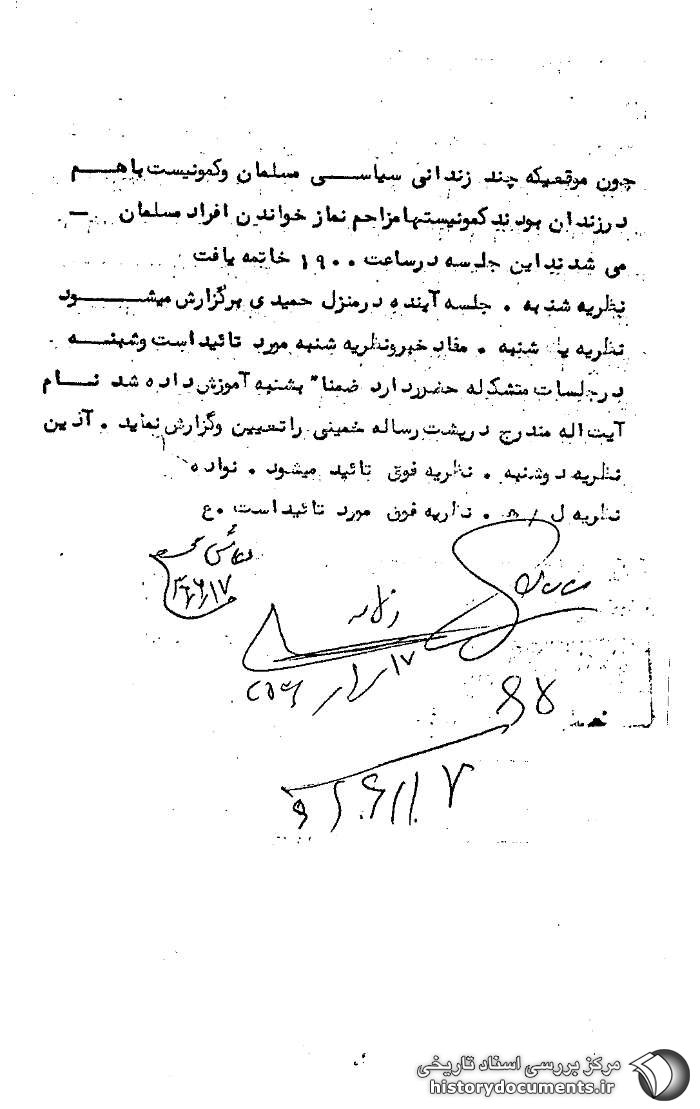 چون موقعیکه چند زندانی سیاسی مسلمان وکمونیست باهم
درزندان بودند کمونیستهامزاحم نماز خواندن افراد مسلمان –
می شدند این جلسه درساعت ۱۹۰۰ خاتمه یافت
نظریه شنبه . جلسه آینده درمنزل حمیدی برگزارش میشود
نظریه یک شنبه . مفاد خبرونظریه شنبه مورد تائیداست وشبنسه
درجلسات متشکله حضوردارد ضمنا" بشنبه آموزش داده شد نام
آیت اله مندرج درپشت رساله خمینی راتعیین وگزارش نماید . آذین
نظریه دوشنبه . نظریه فوق تائید میشود . نواده
نظریه ل / ه . نظریه فوق مورد تائیداست .ع
۱۷
۱۷
۱۷
مرکز بررسی اسناد تاریخی
historydocuments.ir